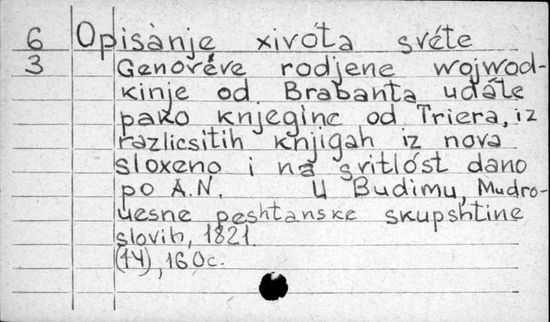 6 Opisànje xivóta svéte
3 Genovéve rodjene wojwod-
kinje od Brabanta udáte
pako knjegine od Triera, iz
razlicsitih knjigah iz nova
sloxeno i na svitlóst dano
po A.N. U Budimu, Mudro-
uesne peshtanske skupshtine
slovih, 1821.
(14), 160c.